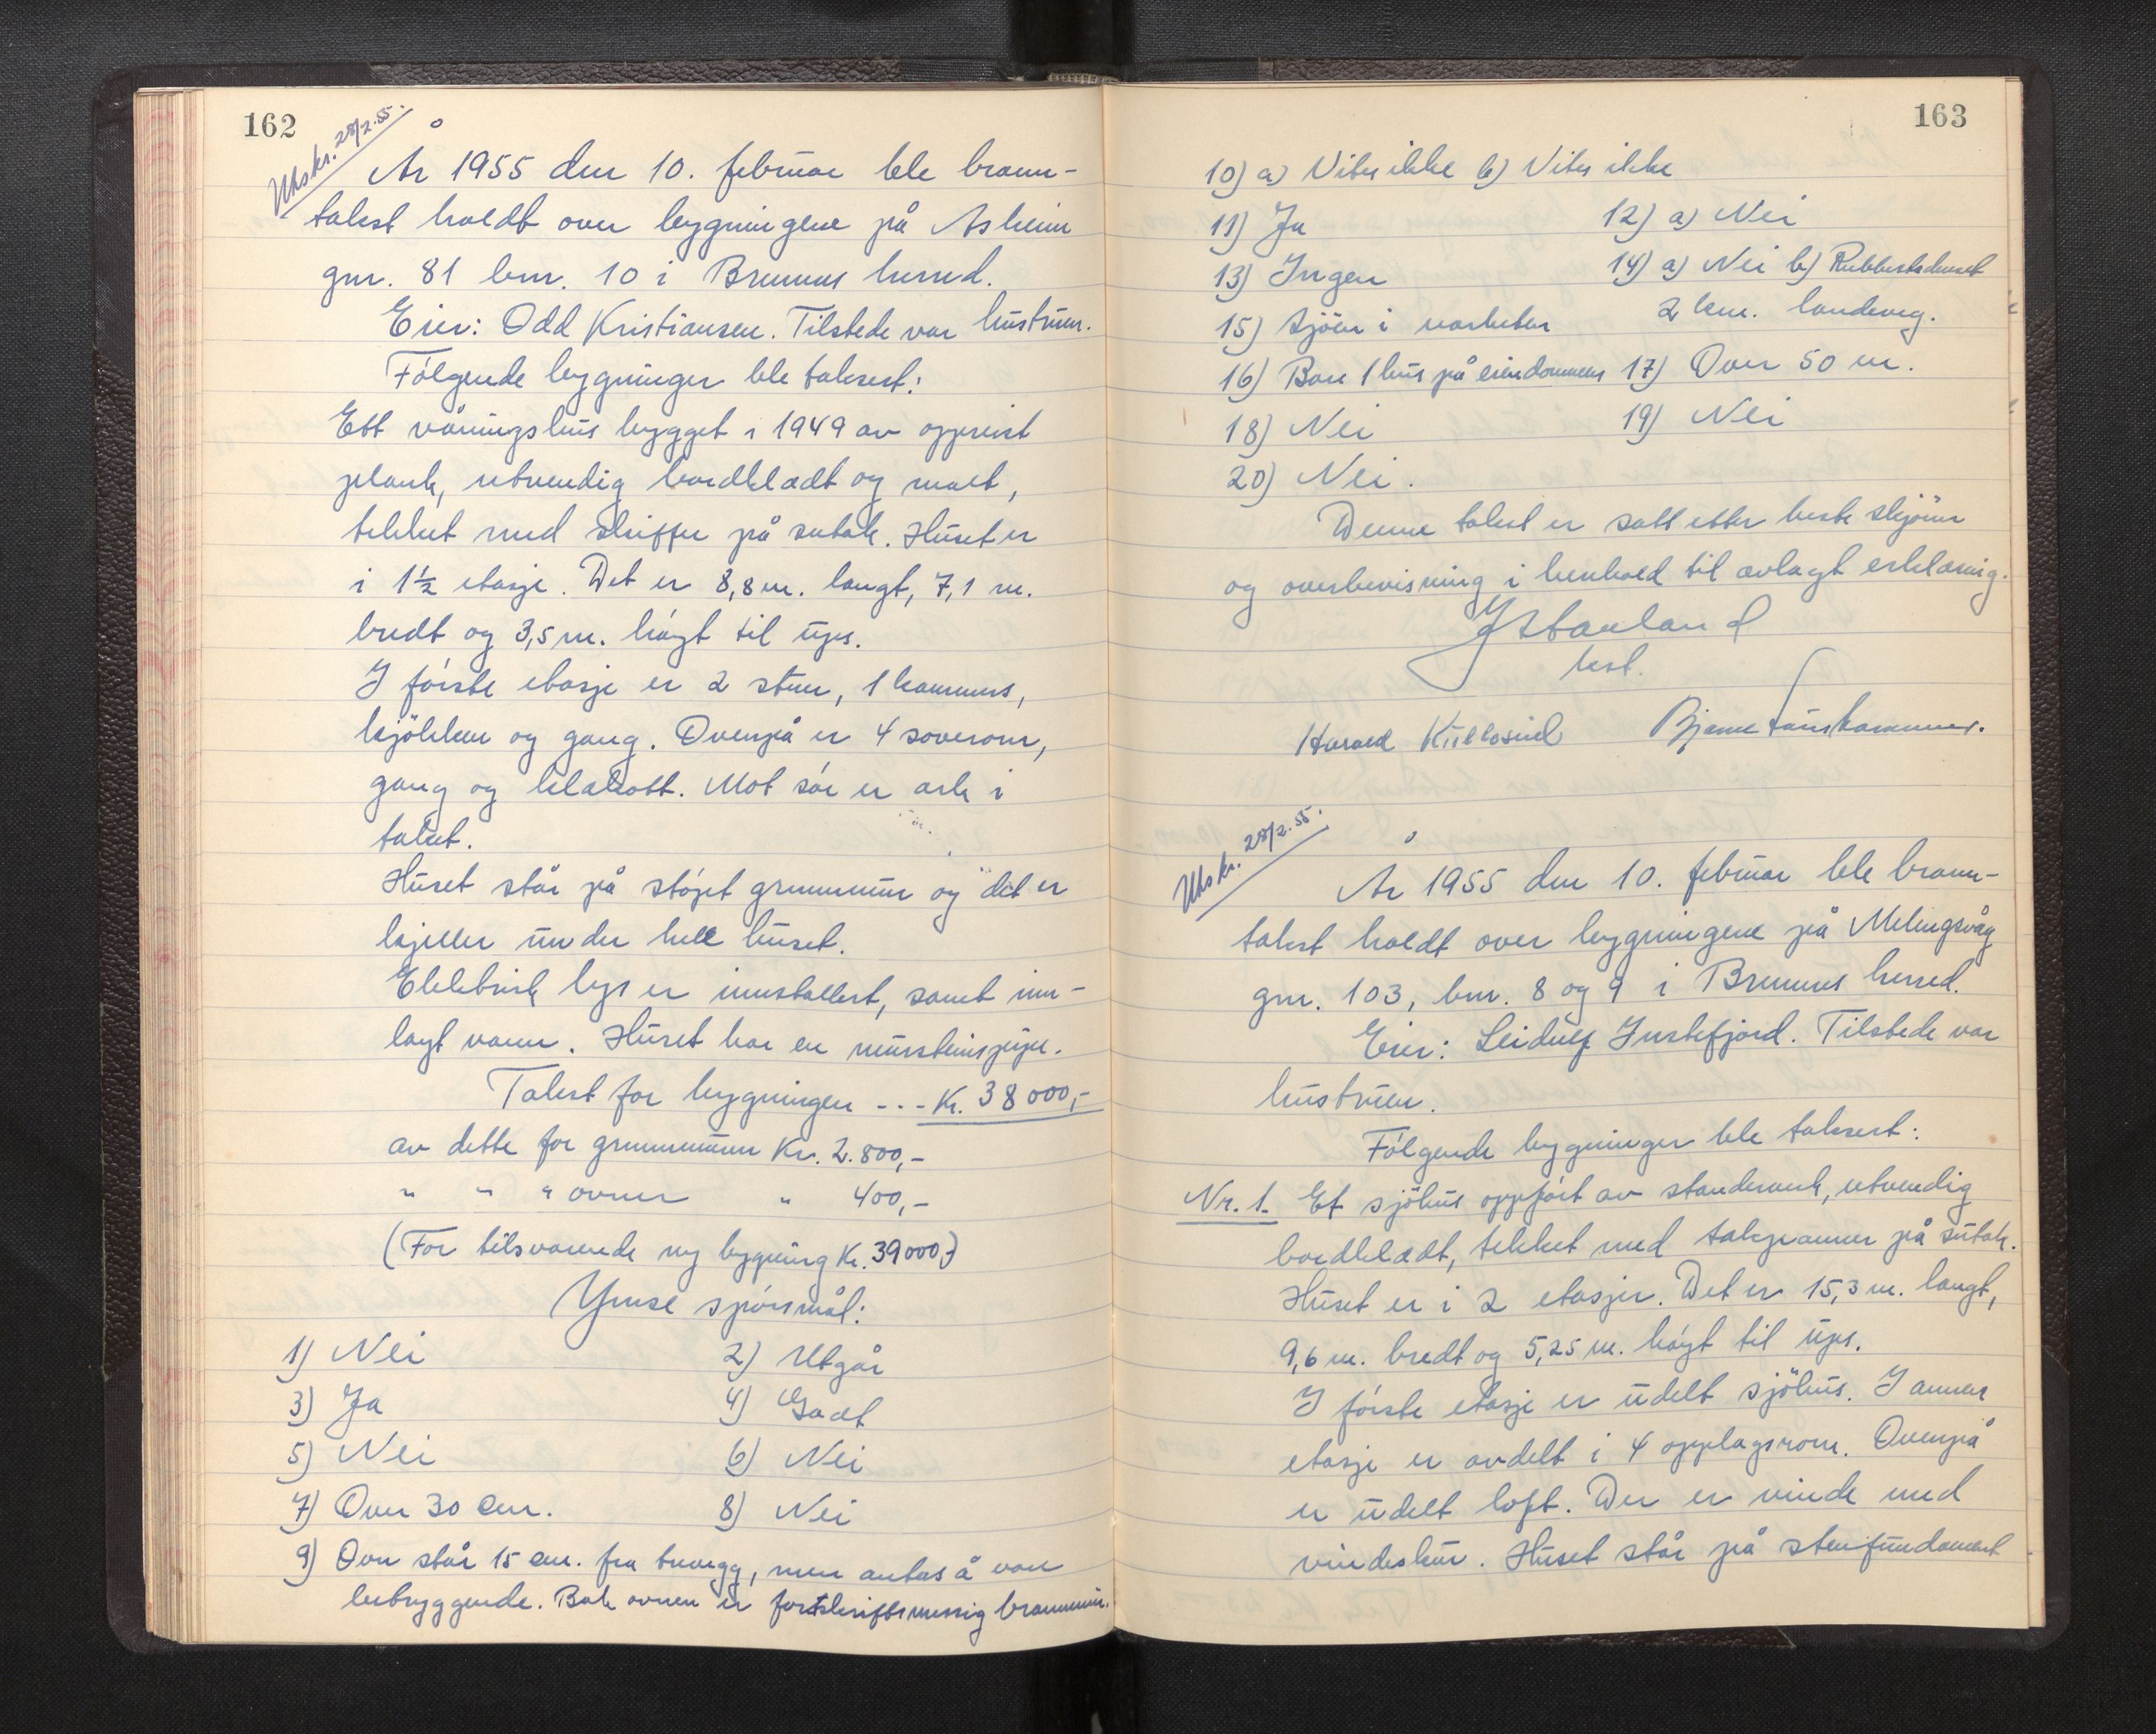 162
Utskr. 28/2.55.
År 1955 den 10. februar ble brann-
takst holdt over bygningene på Asheim
gnr. 81 bnr. 10 i Bremnes herred.
Eier: Odd Kristiansen. Tilstede var hustruen.
Følgende bygninger ble taksert:
Ett våningshus bygget i 1949 av oppreist
plank, utvendig bordkledt og malt,
tekket med skiffer på sutak. Huset er
i 1½ etasje. Det er 8,8 m. langt, 7,1 m.
bredt og 3,5 m. høyt til ups.
I første etasje er 2 stuer, 1 kammers,
kjøkken og gang. Ovenpå er 4 soverom,
gang og klekott. Mot sør er ark i
taket.
Huset står på støpt grunnmur og det er
kjeller under hele huset.
Elektrisk lys er innstallert, samt inn-
lagt vann. Huset har en mursteinspipe.
Takst for bygningen --- Kr. 38000,-
av dette for grunnmuren Kr. 2.800,-
" " " ovner " 400,-
(For tilsvarende ny bygning Kr. 39000,-)
Ymse spørsmål:
1) Nei 2) Utgår
3) Ja 4) Godt
5) Nei 6) Nei
7) Over 30 cm. 8) Nei
9) Ovn står 15 cm. fra trevegg, men antas å være
betryggende. Bak ovnen er forskriftsmessig brannmur.
163
10) a) Vites ikke b) Vites ikke
11) Ja 12) a) Nei
13) Ingen 14) a) Nei b) Rubbestadneset
2 km. landeveg.
15) Sjøen i nærheten
16) Bare 1 hus på eiendommen 17) Over 50 m.
18) Nei 19) Nei
20) Nei.
Denne takst er satt etter beste skjønn
og overbevisning i henhold til avlagt erklæring.
best.
Harald Bjarne
Utskr. 28/2.55.
År 1955 den 10. februar ble brann-
takst holdt over bygningene på Melingsvåg
gnr. 103, bnr. 8 og 9 i Bremnes herred.
Eier: Leidulf Instefjord. Tilstede var
hustruen.
Følgende bygninger ble taksert:
Nr. 1. Et sjøhus oppført av standerverk, utvendig
bordkledt, tekket med takpanner på sutak.
Huset er i 2 etasjer. Det er 15,3 m. langt,
9,6 m. bredt og 5,25 m. høyt til ups.
I første etasje er udelt sjøhus. I annen
etasje er avdelt i 4 opplagsrom. Ovenpå
er udelt loft. Der er vinde med
vindeskur. Huset står på stenfundament